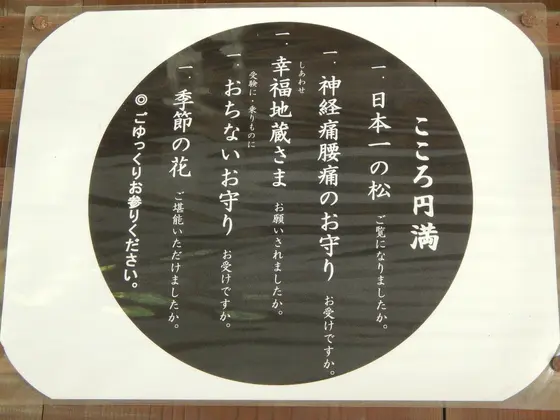 こころ円満
一、日本一の松 ご覧になりましたか。
一、神経痛腰痛のお守り お受けですか。
しあわせ
一、幸福地蔵さま お願いされましたか。
受験に・乗りものに
一、おちないお守り お受けですか。
一、季節の花 ご堪能いただけましたか。
◎ごゆっくりお参りください。